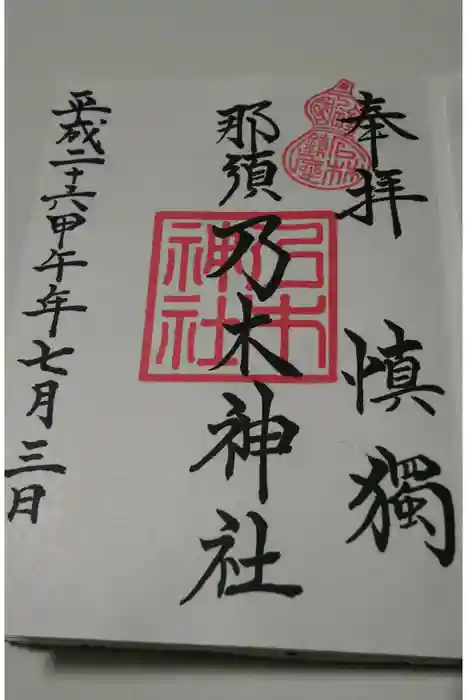 奉拝 慎獨
那須乃木神社
平成二十六甲午年七月三日
乃木
神社